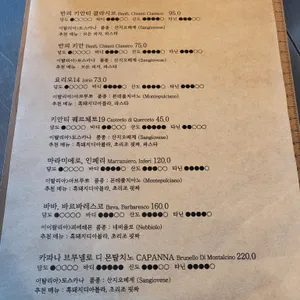 반피 키안티 클라시코 Banfi, Chianti Classico 95.0
당도 ●○○○○ 바디 ●●●○○ 산도 ●●●●○ 타닌 ●●●●○
이탈리아)토스카나 품종 : 산지오베제 (Sangiovese)
추천 메뉴 :
반피 키안 Banfi, Chianti Classico 75.0
당도 ●○○○○ 바디 산도 타닌
이탈리아)토스카나 품종 : 산지오베제 (Sangiovese)
추천 메뉴 : 피자, 파스타
요리오14 Jorio 73.0
당도 ●○○○○ 바디 산도 타닌
이탈리아)아브루쪼 품종 : 몬테풀치아노 (Montepulciano)
추천 메뉴 : 흑돼지디아볼라, 파스타
키안티 퀘르체토19 Castello di Querceto 45.0
당도 ●○○○○ 바디 산도 타닌
이탈리아)토스카나 품종 : 산지오베제 (Sangiovese)
추천 메뉴 : 흑돼지디아볼라, 초리조 핏짜, 파스타
마라미에로, 인페리 Marramiero, Inferi 120.0
당도 ●○○○○ 바디 산도 타닌
이탈리아)아브루쪼 품종 : 몬테풀치아노 (Montepulciano)
추천 메뉴 : 흑돼지디아볼라, 초리조 핏짜
바바, 바르바레스코 Bava, Barbaresco 160.0
당도 ●○○○○ 바디 산도 타닌
이탈리아)피에몬테 품종 : 네비올로 (Nebbiolo)
추천 메뉴 : 흑돼지디아볼라, 초리조 핏짜
카파나 브루넬로 디 몬탈치노 CAPANNA Brunello Di Montalcino 220.0
당도 ●○○○○ 바디 산도 타닌
이탈리아)토스카나 품종 : 산지오베제 (Sangiovese)
추천 메뉴 : 흑돼지디아볼라, 초리조 핏짜